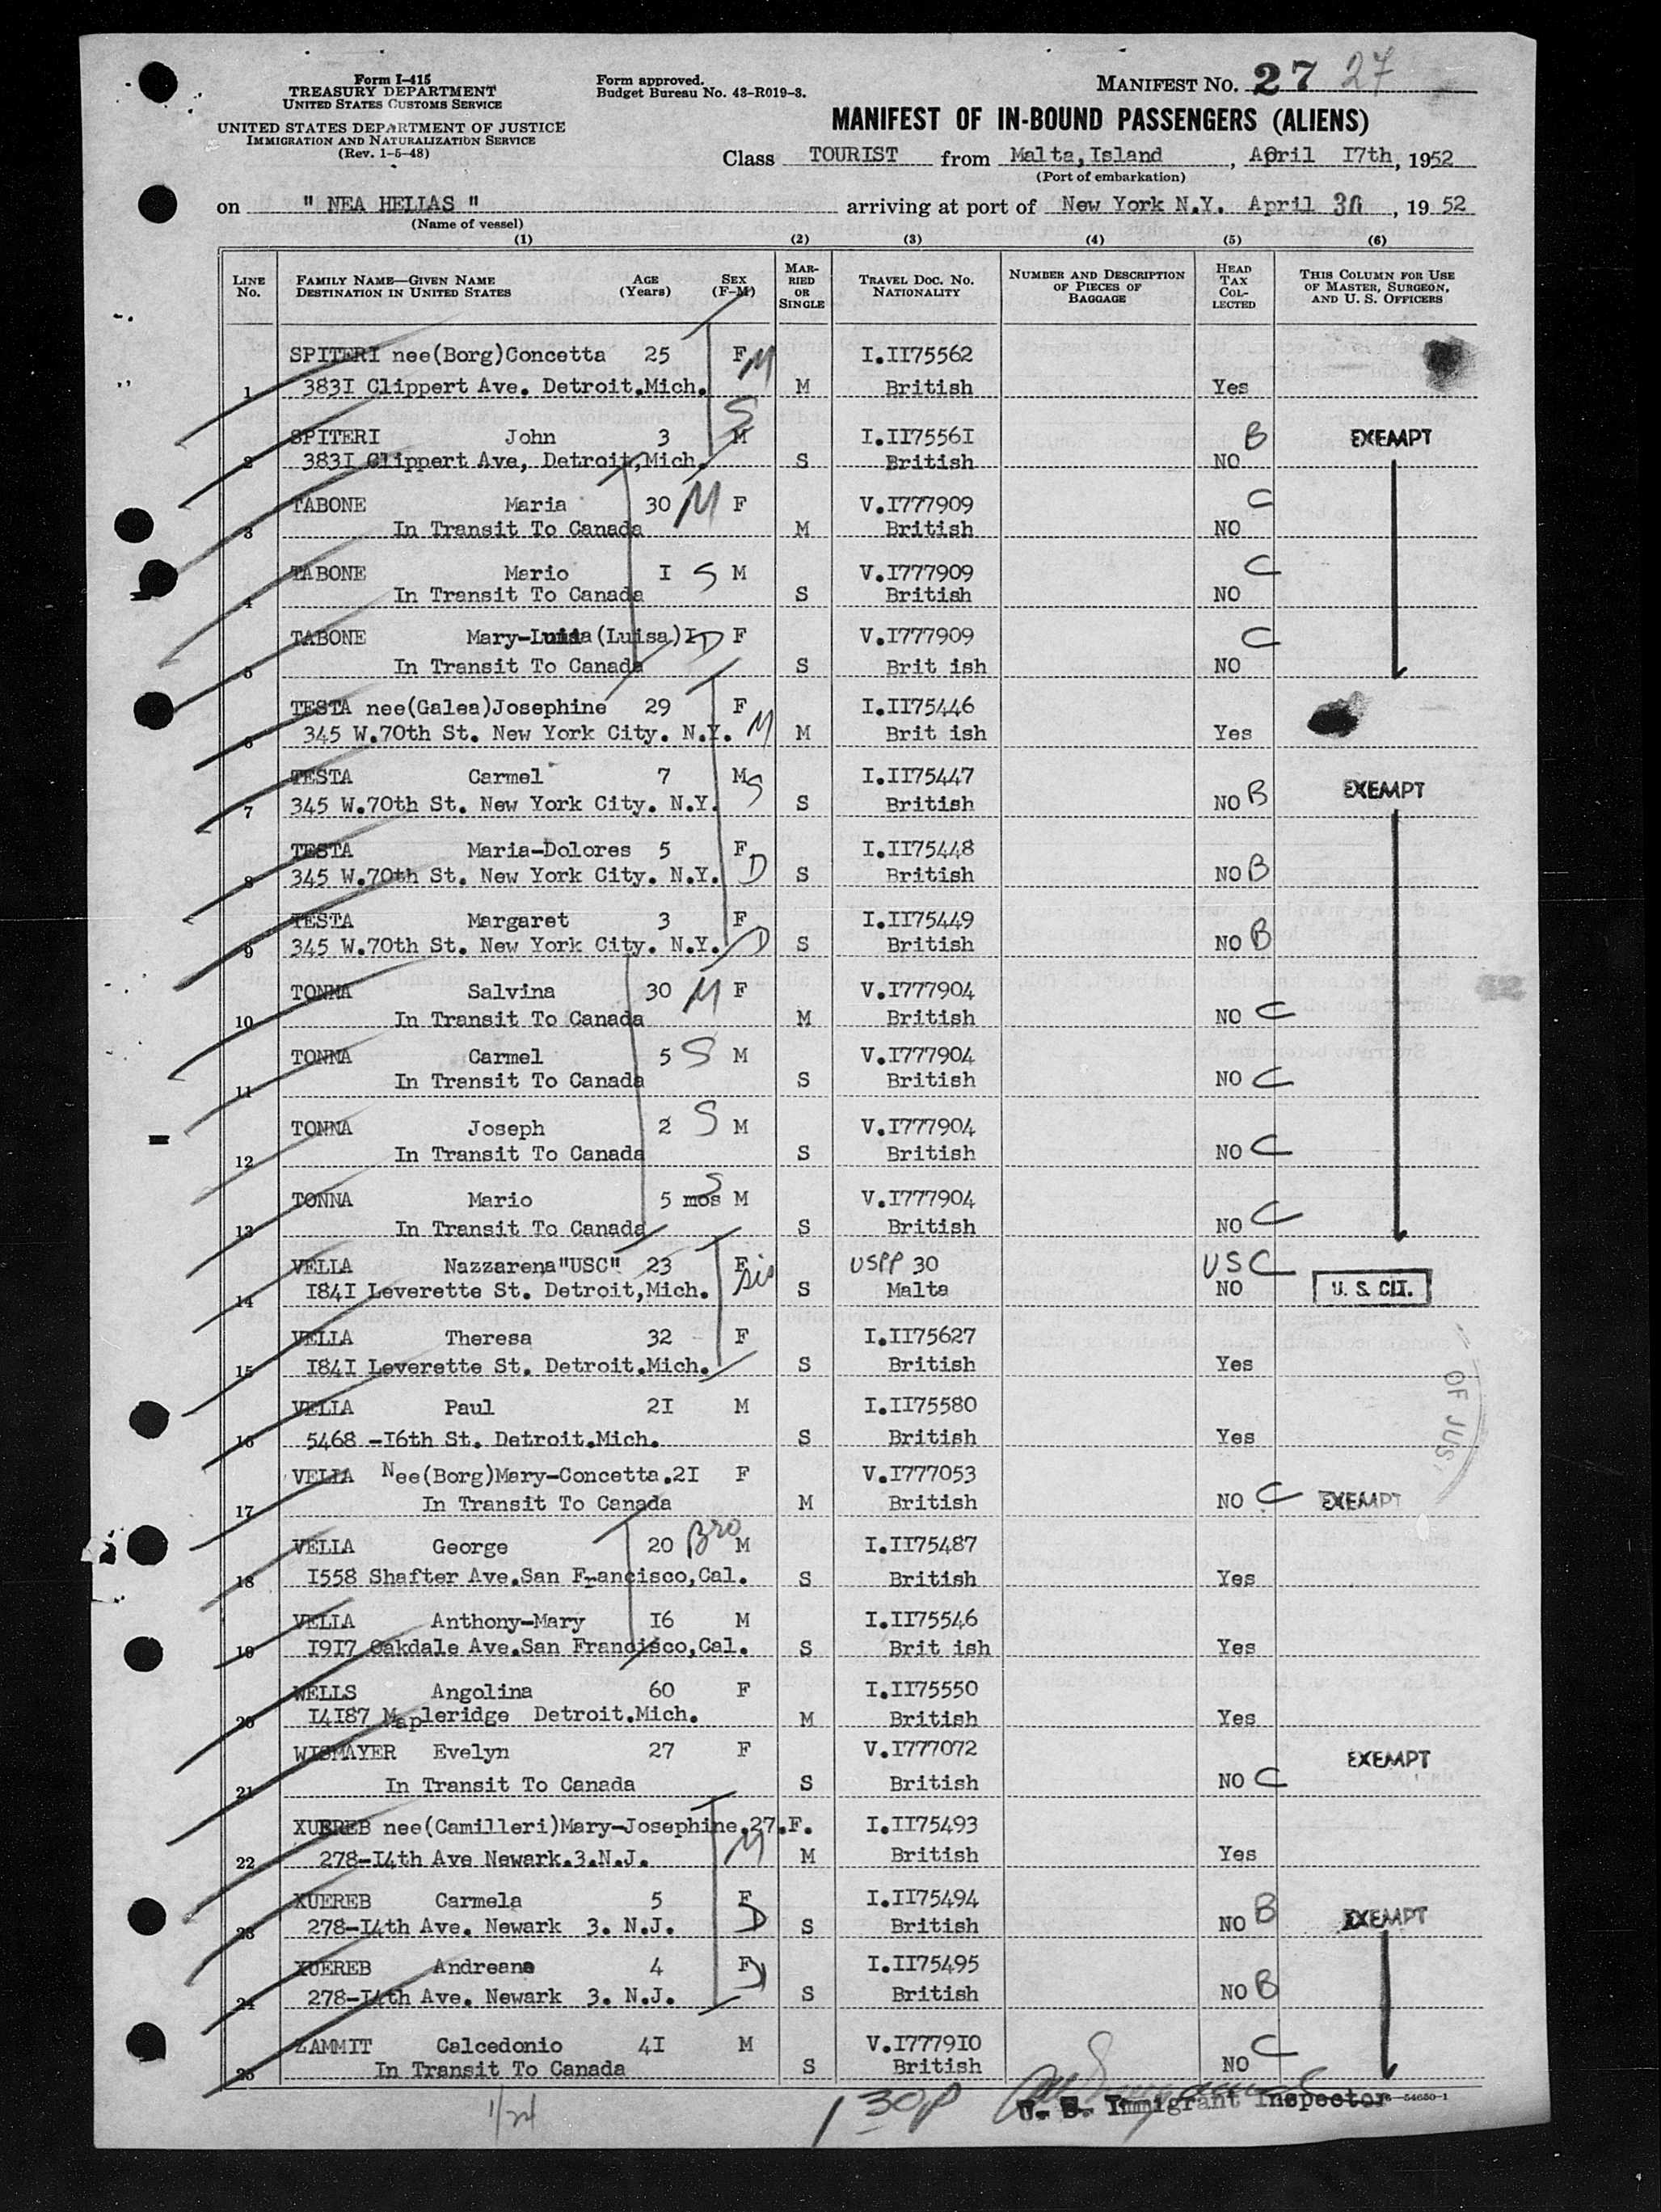 Form I-415
TREASURY DEPARTMENT
UNITED STATES CUSTOMS SERVICE
UNITED STATES DEPARTMENT OF JUSTICE
IMMIGRATION AND NATURALIZATION SERVICE
(Rev. 1-5-48)
Form approved.
Budget Bureau No. 43-R019-3.
MANIFEST NO. 27 27
MANIFEST OF IN-BOUND PASSENGERS (ALIENS)
Class TOURIST from Malta, Island, April I7th, 1952
(Port of embarkation)
on " NEA HELLAS " arriving at port of New York N.Y. April 30, 1952
(Name of vessel)
(1) (2) (3) (4) (5) (6)
LINE No. FAMILY NAME—GIVEN NAME DESTINATION IN UNITED STATES AGE (Years) SEX (F-M) MARRIED OR SINGLE TRAVEL DOC. NO. NATIONALITY NUMBER AND DESCRIPTION OF PIECES OF BAGGAGE HEAD TAX COLLECTED THIS COLUMN FOR USE OF MASTER, SURGEON, AND U. S. OFFICERS
SPITERI nee(Borg)Concetta 25 F M I.II75562
1 383I Clippert Ave. Detroit.Mich. M British Yes
SPITERI John 3 S M I.II7556I B EXEMPT
2 383I Clippert Ave, Detroit,Mich. S British NO
TABONE Maria 30 M F V.I777909 C
3 In Transit To Canada M British NO
TABONE Mario I S M V.I777909 C
4 In Transit To Canada S British NO
TABONE Mary-Luisa(Luisa)I D F V.I777909 C
5 In Transit To Canada S Brit ish NO
TESTA nee(Galea)Josephine 29 F I.II75446
6 345 W.70th St. New York City. N.Y. M M Brit ish Yes
TESTA Carmel 7 M S I.II75447 EXEMPT
7 345 W.70th St. New York City. N.Y. S British NO B
TESTA Maria-Dolores 5 F I.II75448
8 345 W.70th St. New York City. N.Y. D S British NO B
TESTA Margaret 3 F I.II75449
9 345 W.70th St. New York City. N.Y. D S British NO B
TONNA Salvina 30 M F V.I777904
10 In Transit To Canada M British NO C
TONNA Carmel 5 S M V.I777904
11 In Transit To Canada S British NO C
TONNA Joseph 2 S M V.I777904
12 In Transit To Canada S British NO C
TONNA Mario 5 mos S M V.I777904
13 In Transit To Canada S British NO C
VELLA Nazzarena"USC" 23 F sis USPP 30 USC
14 I84I Leverette St. Detroit,Mich. S Malta NO U. S. CIT.
VELLA Theresa 32 F I.II75627
15 I84I Leverette St. Detroit.Mich. S British Yes
VELLA Paul 2I M I.II75580
16 5468 -I6th St. Detroit.Mich. S British Yes
OF JUS
VELLA Nee(Borg)Mary-Concetta.2I F V.I777053
17 In Transit To Canada M British NO C EXEMPT
VELLA George 20 Bro M I.II75487
18 I558 Shafter Ave.San Francisco,Cal. S British Yes
VELLA Anthony-Mary I6 M I.II75546
19 I9I7 Oakdale Ave.San Francisco,Cal. S Brit ish Yes
WELLS Angolina 60 F I.II75550
20 I4I87 Mapleridge Detroit.Mich. M British Yes
WISMAYER Evelyn 27 F V.I777072 EXEMPT
21 In Transit To Canada S British NO C
XUEREB nee(Camilleri)Mary-Josephine.27.F. I.II75493
22 278-I4th Ave Newark.3.N.J. M M British Yes
XUEREB Carmela 5 F I.II75494 EXEMPT
23 278-I4th Ave. Newark 3. N.J. D S British NO B
XUEREB Andreana 4 F D I.II75495
24 278-I4th Ave. Newark 3. N.J. S British NO B
ZAMMIT Calcedonio 4I M V.I7779I0
25 In Transit To Canada S British NO C
1/24 130p U. S. Immigrant Inspector 16—54650-1